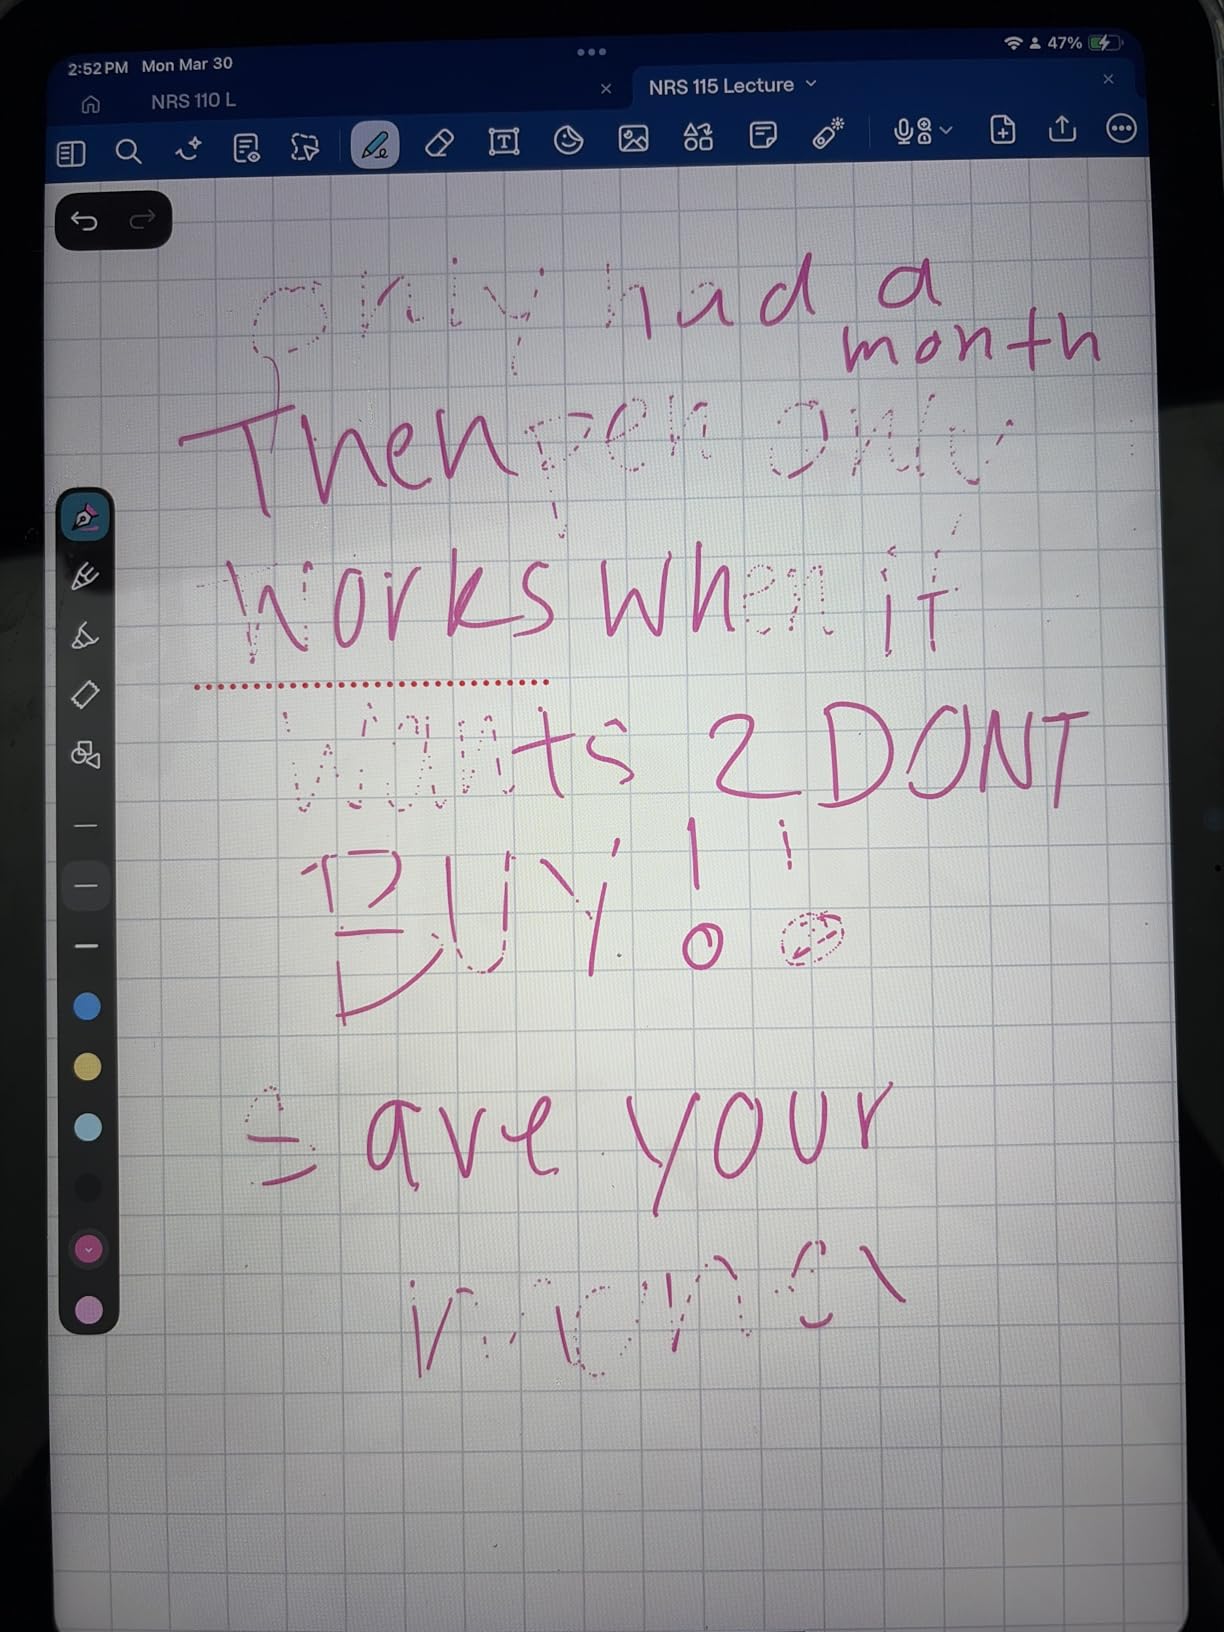 2:52 PM Mon Mar 30 47%
NRS 110 L NRS 115 Lecture
only had a
month
Then pen only
Works when it
wants 2 DONT
BUY!!
Save your
money